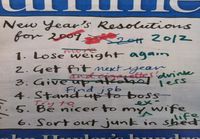 New Year's Resolutions
for 2009 2011 2012
1. Lose weight again
2. Get fit next year
3. Give up drink less
find job
4. Stand up to boss
Try to ex
5. Be nicer to my wife
6. Sort out junk in shed life